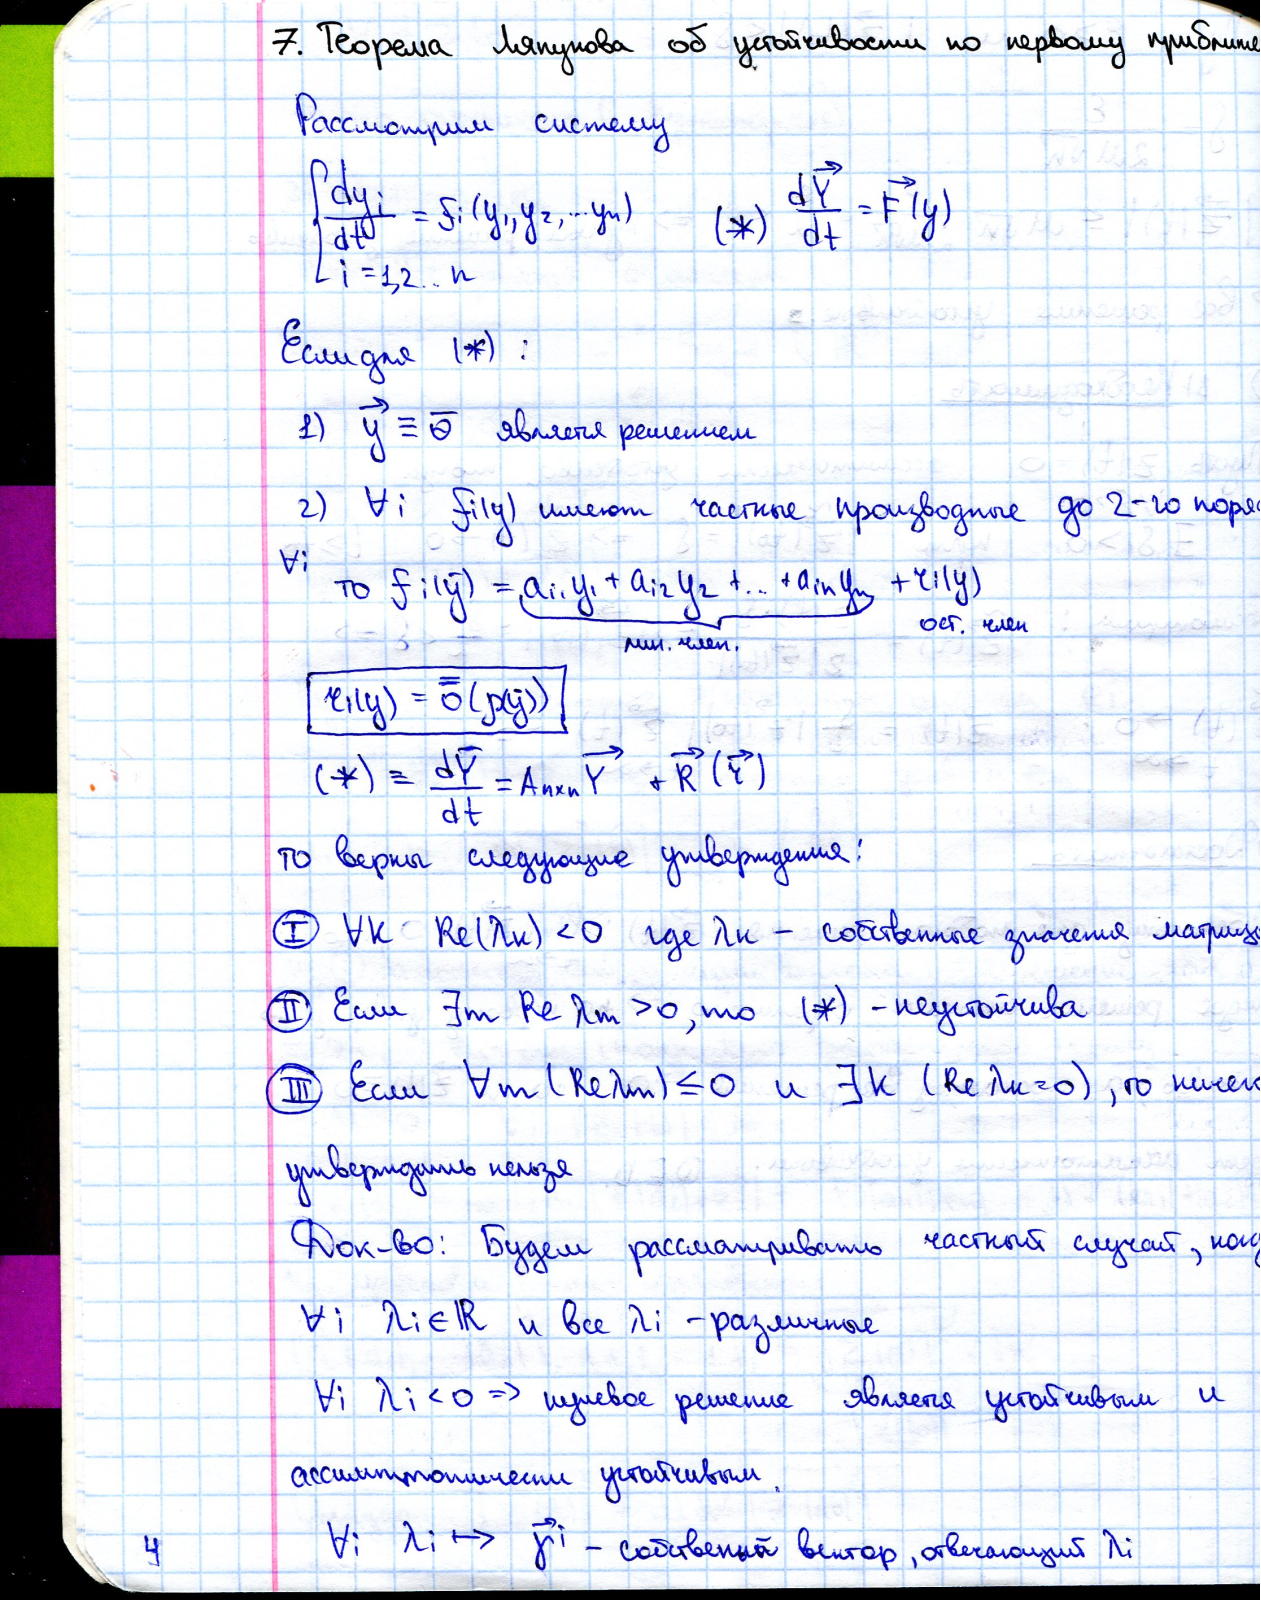 7. Теорема Ляпунова об устойчивости по первому приближе
Рассмотрим систему
{ dyi/dt = fi(y1, y2, ... yn)   (*) dY⃗/dt = F⃗(y)
i = 1,2 .. n
Если для (*) :
1) y⃗ ≡ 0̄ является решением
2) ∀i fi(y) имеют частные производные до 2-го поряд
∀i
то fi(ȳ) = ai1 y1 + ai2 y2 + ... + ain yn + ri(y)
лин. член.   ост. член
ri(y) = o̿(ρ(ȳ))
(*) ≡ dY⃗/dt = An×n Y⃗ + R⃗(Y⃗)
то верны следующие утверждения:
I ∀k Re(λk) < 0 где λk – собственные значения матриц
II Если ∃m Re λm > 0, то (*) – неустойчива
III Если ∀m (Re λm) ≤ 0 и ∃k (Re λk = 0), то ничег
утверждать нельзя
Док-во: Будем рассматривать частный случай, когд
∀i λi ∈ ℝ и все λi – различные
∀i λi < 0 => нулевое решение является устойчивым и
ассимптотически устойчивым.
∀i λi ↦ γ⃗ⁱ – собственный вектор, отвечающий λi
4